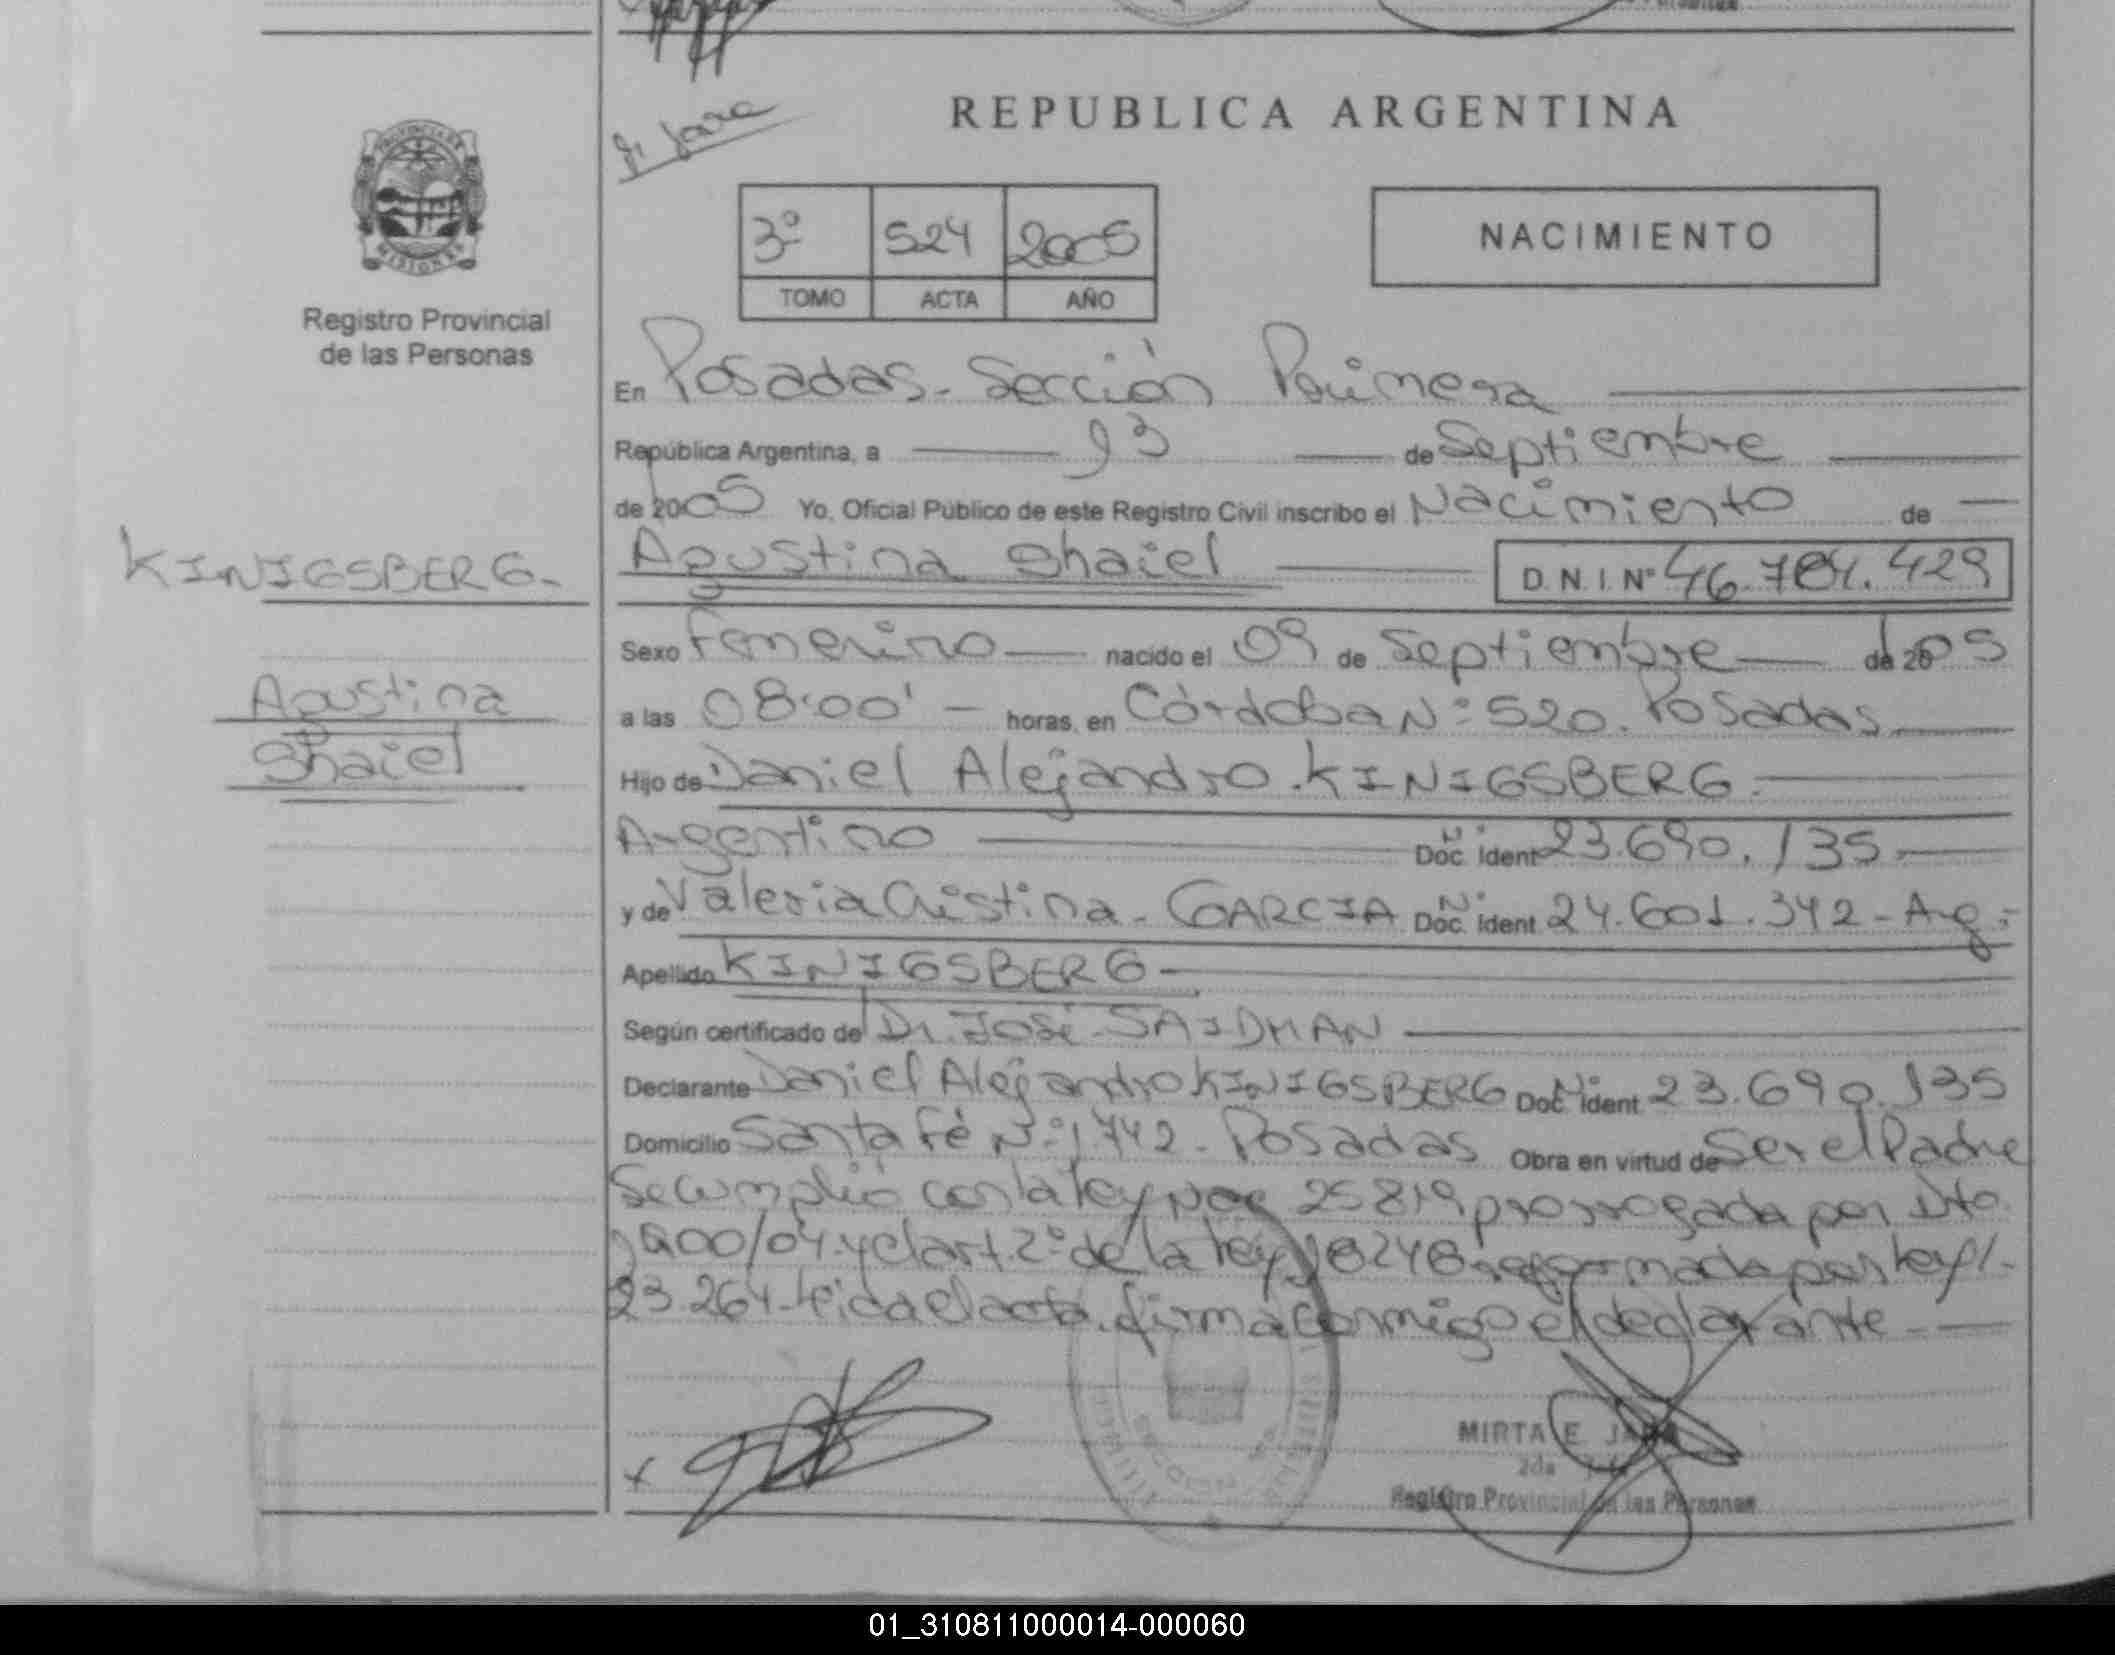 REPUBLICA ARGENTINA
PROVINCIA DE
MISIONES
Registro Provincial
de las Personas
3º 524 2005
TOMO ACTA AÑO
NACIMIENTO
En Posadas - Sección Primera
República Argentina, a 13 de Septiembre
de 2005 Yo, Oficial Público de este Registro Civil inscribo el Nacimiento de
KINIGSBERG.
Agustina Shaiel D.N.I. Nº 46.784.429
Sexo Femenino nacido el 09 de Septiembre de 2005
Agustina
Shaiel
a las 08:00' horas, en Córdoba Nº 520. Posadas
Hijo de Daniel Alejandro KINIGSBERG
Argentino Doc. Ident 23.690.135
y de Valeria Cristina - GARCIA Doc. Ident 24.601.342 - Arg.
Apellido KINIGSBERG
Según certificado de Dr. José SAIDMAN
Declarante Daniel Alejandro KINIGSBERG Doc. Ident 23.690.135
Domicilio Santa Fé Nº 1742 - Posadas Obra en virtud de Ser el Padre
Se cumplió con la ley 25819 prorrogada por Dto.
1900/04 y el art. 2º de la ley 18248 reformada por ley
23.264 - leida el acta, firma conmigo el declarante
MIRTA E. JARA
2da
Registro Provincial de las Personas
01_310811000014-000060